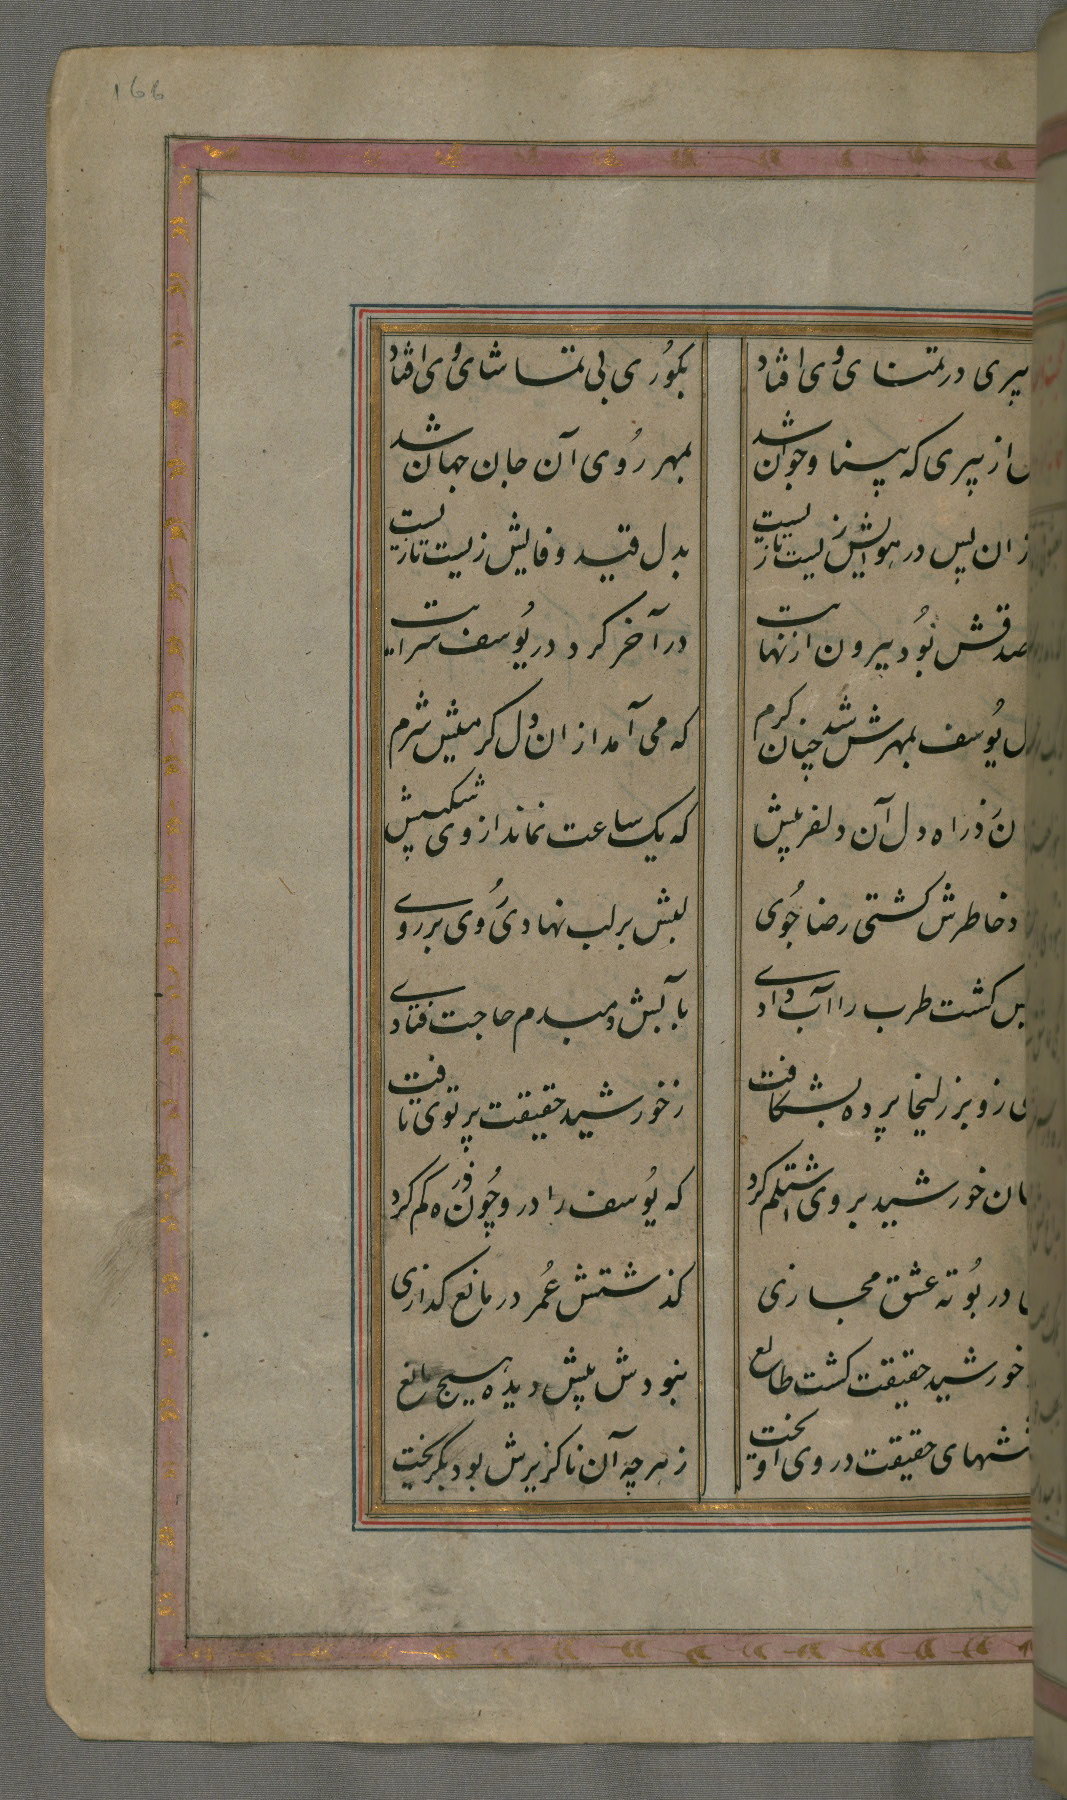 166
پیری در تمنای وی افتاد بکوری بی تماشای وی افتاد
از پیری که بینا و جوان شد بمهر روی آن جان جهان شد
زان پس در هوایش زیست تا زیست بدل قید وفایش زیست تا زیست
صدقش بود بیرون از نهایت در آخر کرد در یوسف سرایت
دل یوسف بمهرش شد چنان گرم که می آمد از ان دل گرمیش شرم
زد راه دل آن دلفریبش که یک ساعت نماند از وی شکیبش
خاطرش گشتی رضا جوی لبش بر لب نهادی روی بر روی
کشت طرب را آب دادی بآبش دمبدم حاجت فتادی
زو بر زلیخا پرده بشکافت ز خورشید حقیقت پرتوی تافت
خورشید بر وی اشتلم کرد که یوسف را درو چون ذره گم کرد
در بوته عشق مجازی گذشتش عمر در مانع گدازی
خورشید حقیقت گشت طالع نبودش پیش دیده هیچ مانع
حقیقت در وی آویخت ز هر چه آن ناگزیرش بود بگریخت